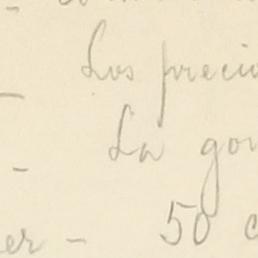 -
Los precio
-
La gor
-
er - 50 c